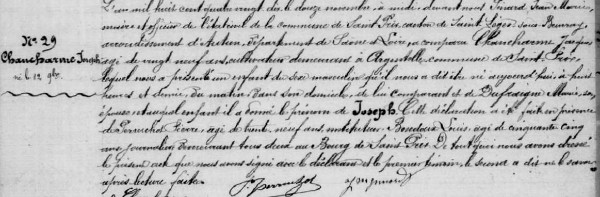 L'an mil huit cent quatre vingt dix, le douze novembre à midi devant nous
maire et officier de l'état civil de la commune de Saint Prix, canton de Saint Léger sous Beuvray,
N° 29
arrondissement d'Autun, département de Saône et Loire, a comparu Chancharme Jacques
Chancharme Joseph
âgé de vingt neuf ans, cultivateur demeurant à Argentolle commune de Saint Prix,
né le 12 9bre
lequel nous a présenté un enfant du sexe masculin qu'il nous a dit être né aujourd'hui à
heures et demie du matin dans son domicile, de lui comparant et de Marie, son
épouse et auquel enfant il a donné le prénom de Joseph. Cette déclaration a été faite en présence
de Pierre, âgé de trente neuf ans, instituteur Louis, âgé de cinquante cinq
ans, journalier, demeurant tous deux au Bourg de Saint Prix. De tout quoi nous avons dressé
le présent acte que nous avons signé avec le déclarant et le premier témoin, le second a dit ne le savoir
après lecture faite.